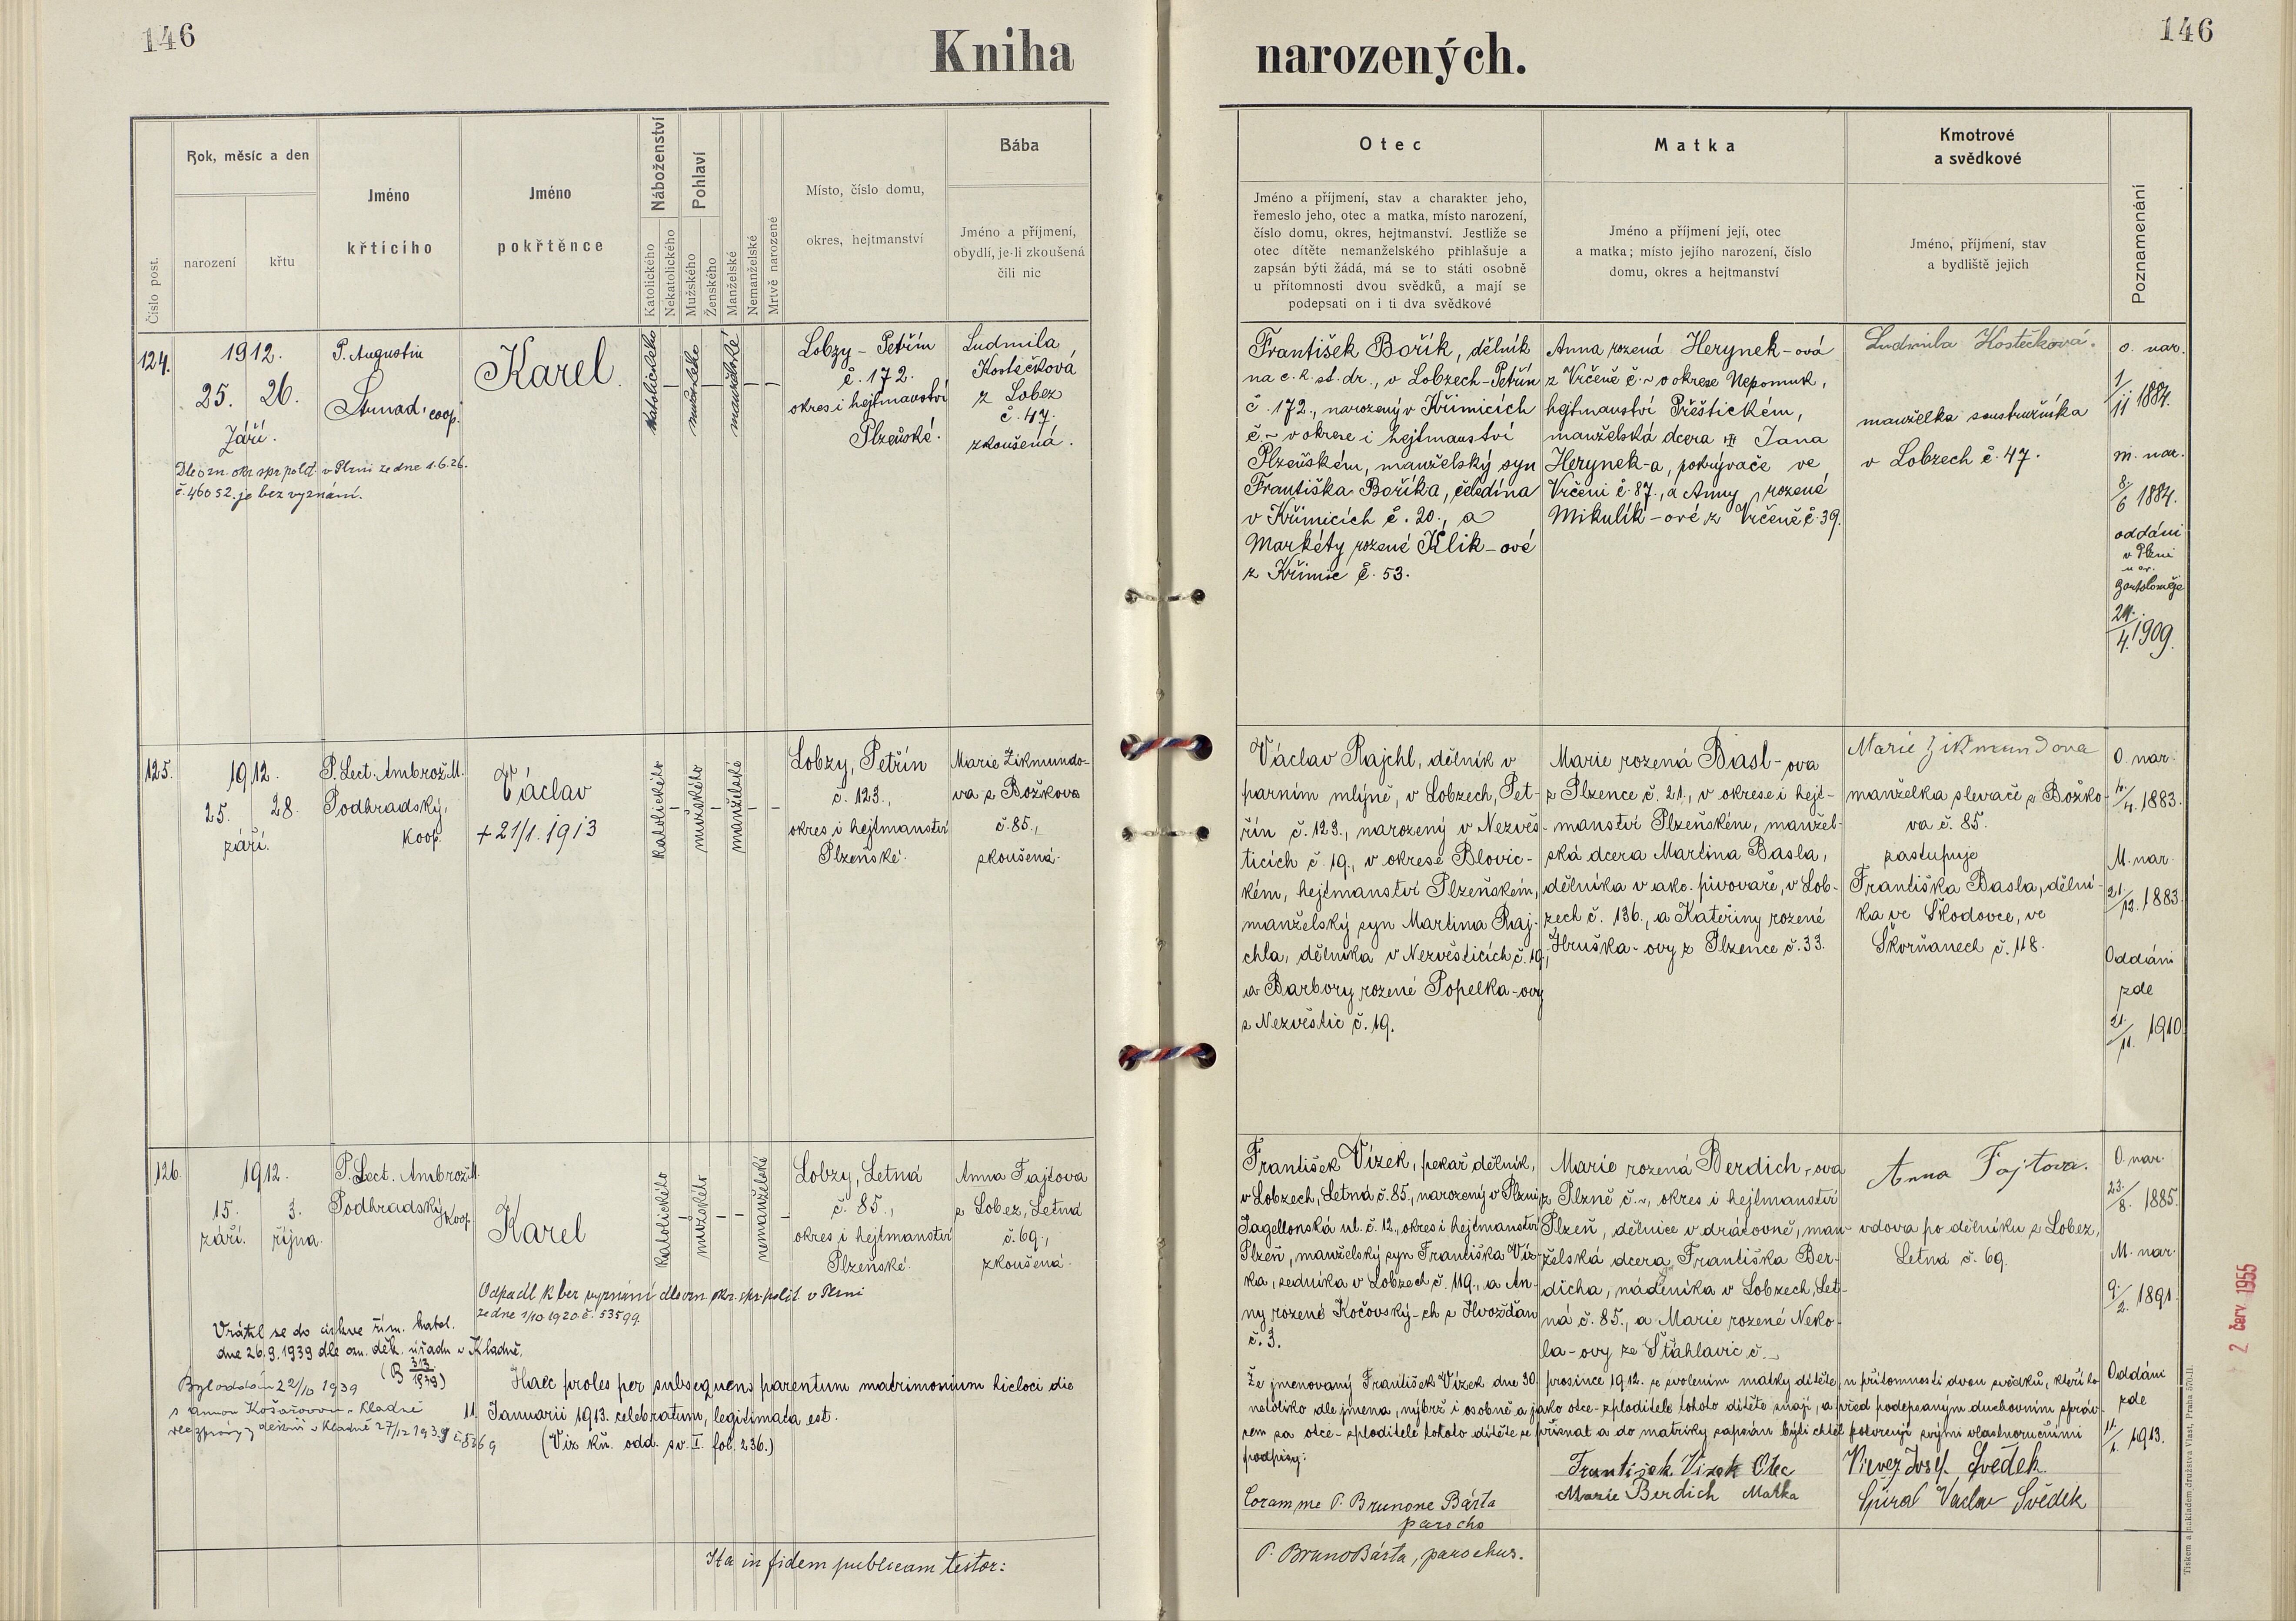 146
Kniha narozených.
146
Číslo post.
Rok, měsíc a den
narození
křtu
Jméno
křtícího
Jméno
pokřtěnce
Náboženství
Katolického
Nekatolického
Pohlaví
Mužského
Ženského
Manželské
Nemanželské
Mrtvě narozené
Místo, číslo domu,
okres, hejtmanství
Bába
Jméno a příjmení,
obydlí, je-li zkoušená
čili nic
Otec
Jméno a příjmení, stav a charakter jeho,
řemeslo jeho, otec a matka, místo narození,
číslo domu, okres, hejtmanství. Jestliže se
otec dítěte nemanželského přihlašuje a
zapsán býti žádá, má se to státi osobně
u přítomnosti dvou svědků, a mají se
podepsati on i ti dva svědkové
Matka
Jméno a příjmení její, otec
a matka; místo jejího narození, číslo
domu, okres a hejtmanství
Kmotrové
a svědkové
Jméno, příjmení, stav
a bydliště jejich
Poznamenání
124.
1912.
25. 26.
Září.
P. Augustin
Strnad, coop.
Karel.
katolického
mužského
manželské
Lobzy - Petřín
č. 172.
okres i hejtmanství
Plzeňské.
Ludmila
Kostečková
z Lobez
č. 47.
zkoušená.
Dle ozn. okr. spr. polit. v Plzni ze dne 1.6.26.
č. 46052. je bez vyznání.
František Bořík, dělník
na c. k. st. dr., v Lobzech-Petřín
č. 172., narozený v Křimicích
č. ~ v okrese i hejtmanství
Plzeňském, manželský syn
Františka Boříka, čeledína
v Křimicích č. 20., a
Markéty rozené Klik-ové
z Křimic č. 53.
Anna rozená Herynek-ová
z Vrčeně č. ~ v okrese Nepomuk,
hejtmanství Přeštickém,
manželská dcera Jana
Herynek-a, pokrývače ve
Vrčeni č. 87., a Anny rozené
Mikulík-ové z Vrčeně č. 39.
Ludmila Kostečková.
manželka soustružníka
v Lobzech č. 47.
o. nar.
1/11 1884.
m. nar.
8/6 1884.
oddáni
v Plzni
u sv.
Bartoloměje
24./4. 1909.
125.
1912.
25. 28.
září.
P. Lect. Ambrož M.
Podhradský,
koop.
Václav
+ 21/1. 1913
katolického
mužského
manželské
Lobzy, Petřín
č. 123.,
okres i hejtmanství
Plzeňské.
Marie Zikmundo-
va z Božkova
č. 85.,
zkoušená.
Václav Rajchl, dělník v
parním mlýně, v Lobzech, Pet-
řín č. 123., narozený v Nezvěs-
ticích č. 19., v okrese Blovic-
kém, hejtmanství Plzeňském,
manželský syn Martina Raj-
chla, dělníka v Nezvěsticích č. 19.,
a Barbory rozené Popelka-ovy
z Nezvěstic č. 19.
Marie rozená Basl-ova
z Plzence č. 21., v okrese i hejt-
manství Plzeňském, manžel-
ská dcera Martina Basla,
dělníka v akc. pivovaře, v Lob-
zech č. 136., a Kateřiny rozené
Hruška-ovy z Plzence č. 33.
Marie Zikmundova
manželka slevače z Božko-
va č. 85.
zastupuje
Františka Basla, dělní-
ka ve Škodovce, ve
Skvrňanech č. 118.
O. nar.
4./4. 1883.
M. nar.
21/12. 1883.
Oddáni
zde
21./11. 1910.
126.
1912.
15. 3.
září. října.
P. Lect. Ambrož M.
Podhradský, koop.
Karel
katolického
mužského
nemanželské
Lobzy, Letná
č. 85.,
okres i hejtmanství
Plzeňské.
Anna Fajtova
z Lobez, Letná
č. 69.,
zkoušená.
Odpadl k bez vyznání dle ozn. okr. spr. polit. v Plzni
ze dne 1/10 1920. č. 53599.
Vrátil se do církve řím. katol.
dne 26.9.1939 dle ozn. děk. úřadu v Kladně.
(B 313/1939)
Byl oddán 22/10 1939
s Annou Košařovou v Kladně
dle zprávy děkan. v Kladně 27/12 1939 č. 8369
Haec proles per subsequens parentum matrimonium hicloci die
11. Januarii 1913. celebratum, legitimata est.
(Viz kn. odd. sv. I. fol. 236.)
František Vízek, pekař dělník,
v Lobzech, Letná č. 85., narozený v Plzni
Jagellonská ul. č. 12., okres i hejtmanství
Plzeň, manželský syn Františka Víz-
ka, zedníka v Lobzech č. 119., a An-
ny rozené Kočovský-ch z Hvožďan
č. 3.
Marie rozená Berdich-ova
z Plzně č. ~, okres i hejtmanství
Plzeň, dělnice v drátovně, man-
želská dcera Františka Ber-
dicha, nádeníka v Lobzech, Let-
ná č. 85., a Marie rozené Neko-
la-ovy ze Šťáhlavic č. ~
Anna Fajtova.
vdova po dělníku z Lobez,
Letná č. 69.
O. nar.
23./8. 1885.
M. nar.
9./2. 1891.
Oddáni
zde
11./1. 1913.
Že jmenovaný František Vízek dne 30. prosince 1912. se svolením matky dítěte, u přítomnosti dvou svědků, kteří ho
netoliko dle jmena, nýbrž i osobně a jako otce-zploditele tohoto dítěte znají, a před podepsaným duchovním správ-
cem za otce-zploditele tohoto dítěte se přiznat a do matriky zapsán býti chtěl potvrzují svými vlastnoručními
podpisy:
František Vízek Otec
Marie Berdich Matka
Josef Svědek.
Václav Svědek
Coram me P. Brunone Bárta
parocho
Ita in fidem publicam testor:
P. Bruno Bárta, parochus.
2 červ 1955
Tiskem a nákladem družstva Vlast, Praha 570-II.